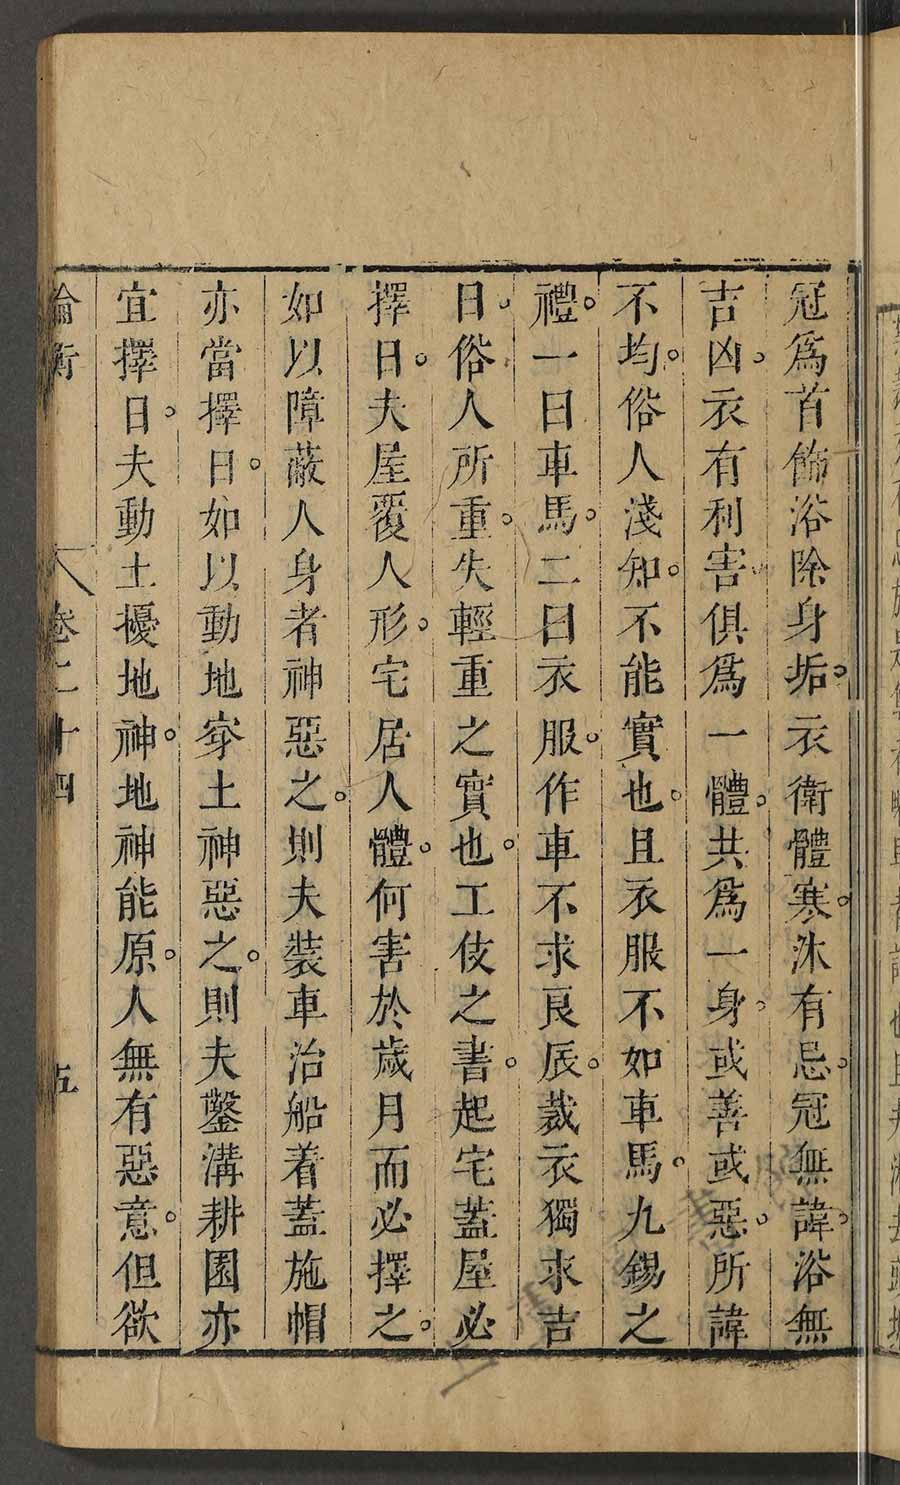 冠爲首飾浴除身垢。衣衛體寒。沐有忌。冠無諱。浴無
吉凶。衣有利害。俱爲一體。共爲一身。或善或惡。所諱
不均。俗人淺知。不能實也。且衣服不如車馬。九錫之
禮。一曰車馬。二曰衣服。作車不求良辰。裁衣獨求吉
日。俗人所重。失輕重之實也。工伎之書。起宅蓋屋必
擇日。夫屋覆人形。宅居人體。何害於歲月而必擇之。
如以障蔽人身者神惡之。則夫裝車治船着蓋施帽
亦當擇日。如以動地穿土神惡之。則夫鑿溝耕園亦
宜擇日。夫動土擾地神。地神能原。人無有惡意。但欲
論衡 卷二十四 五